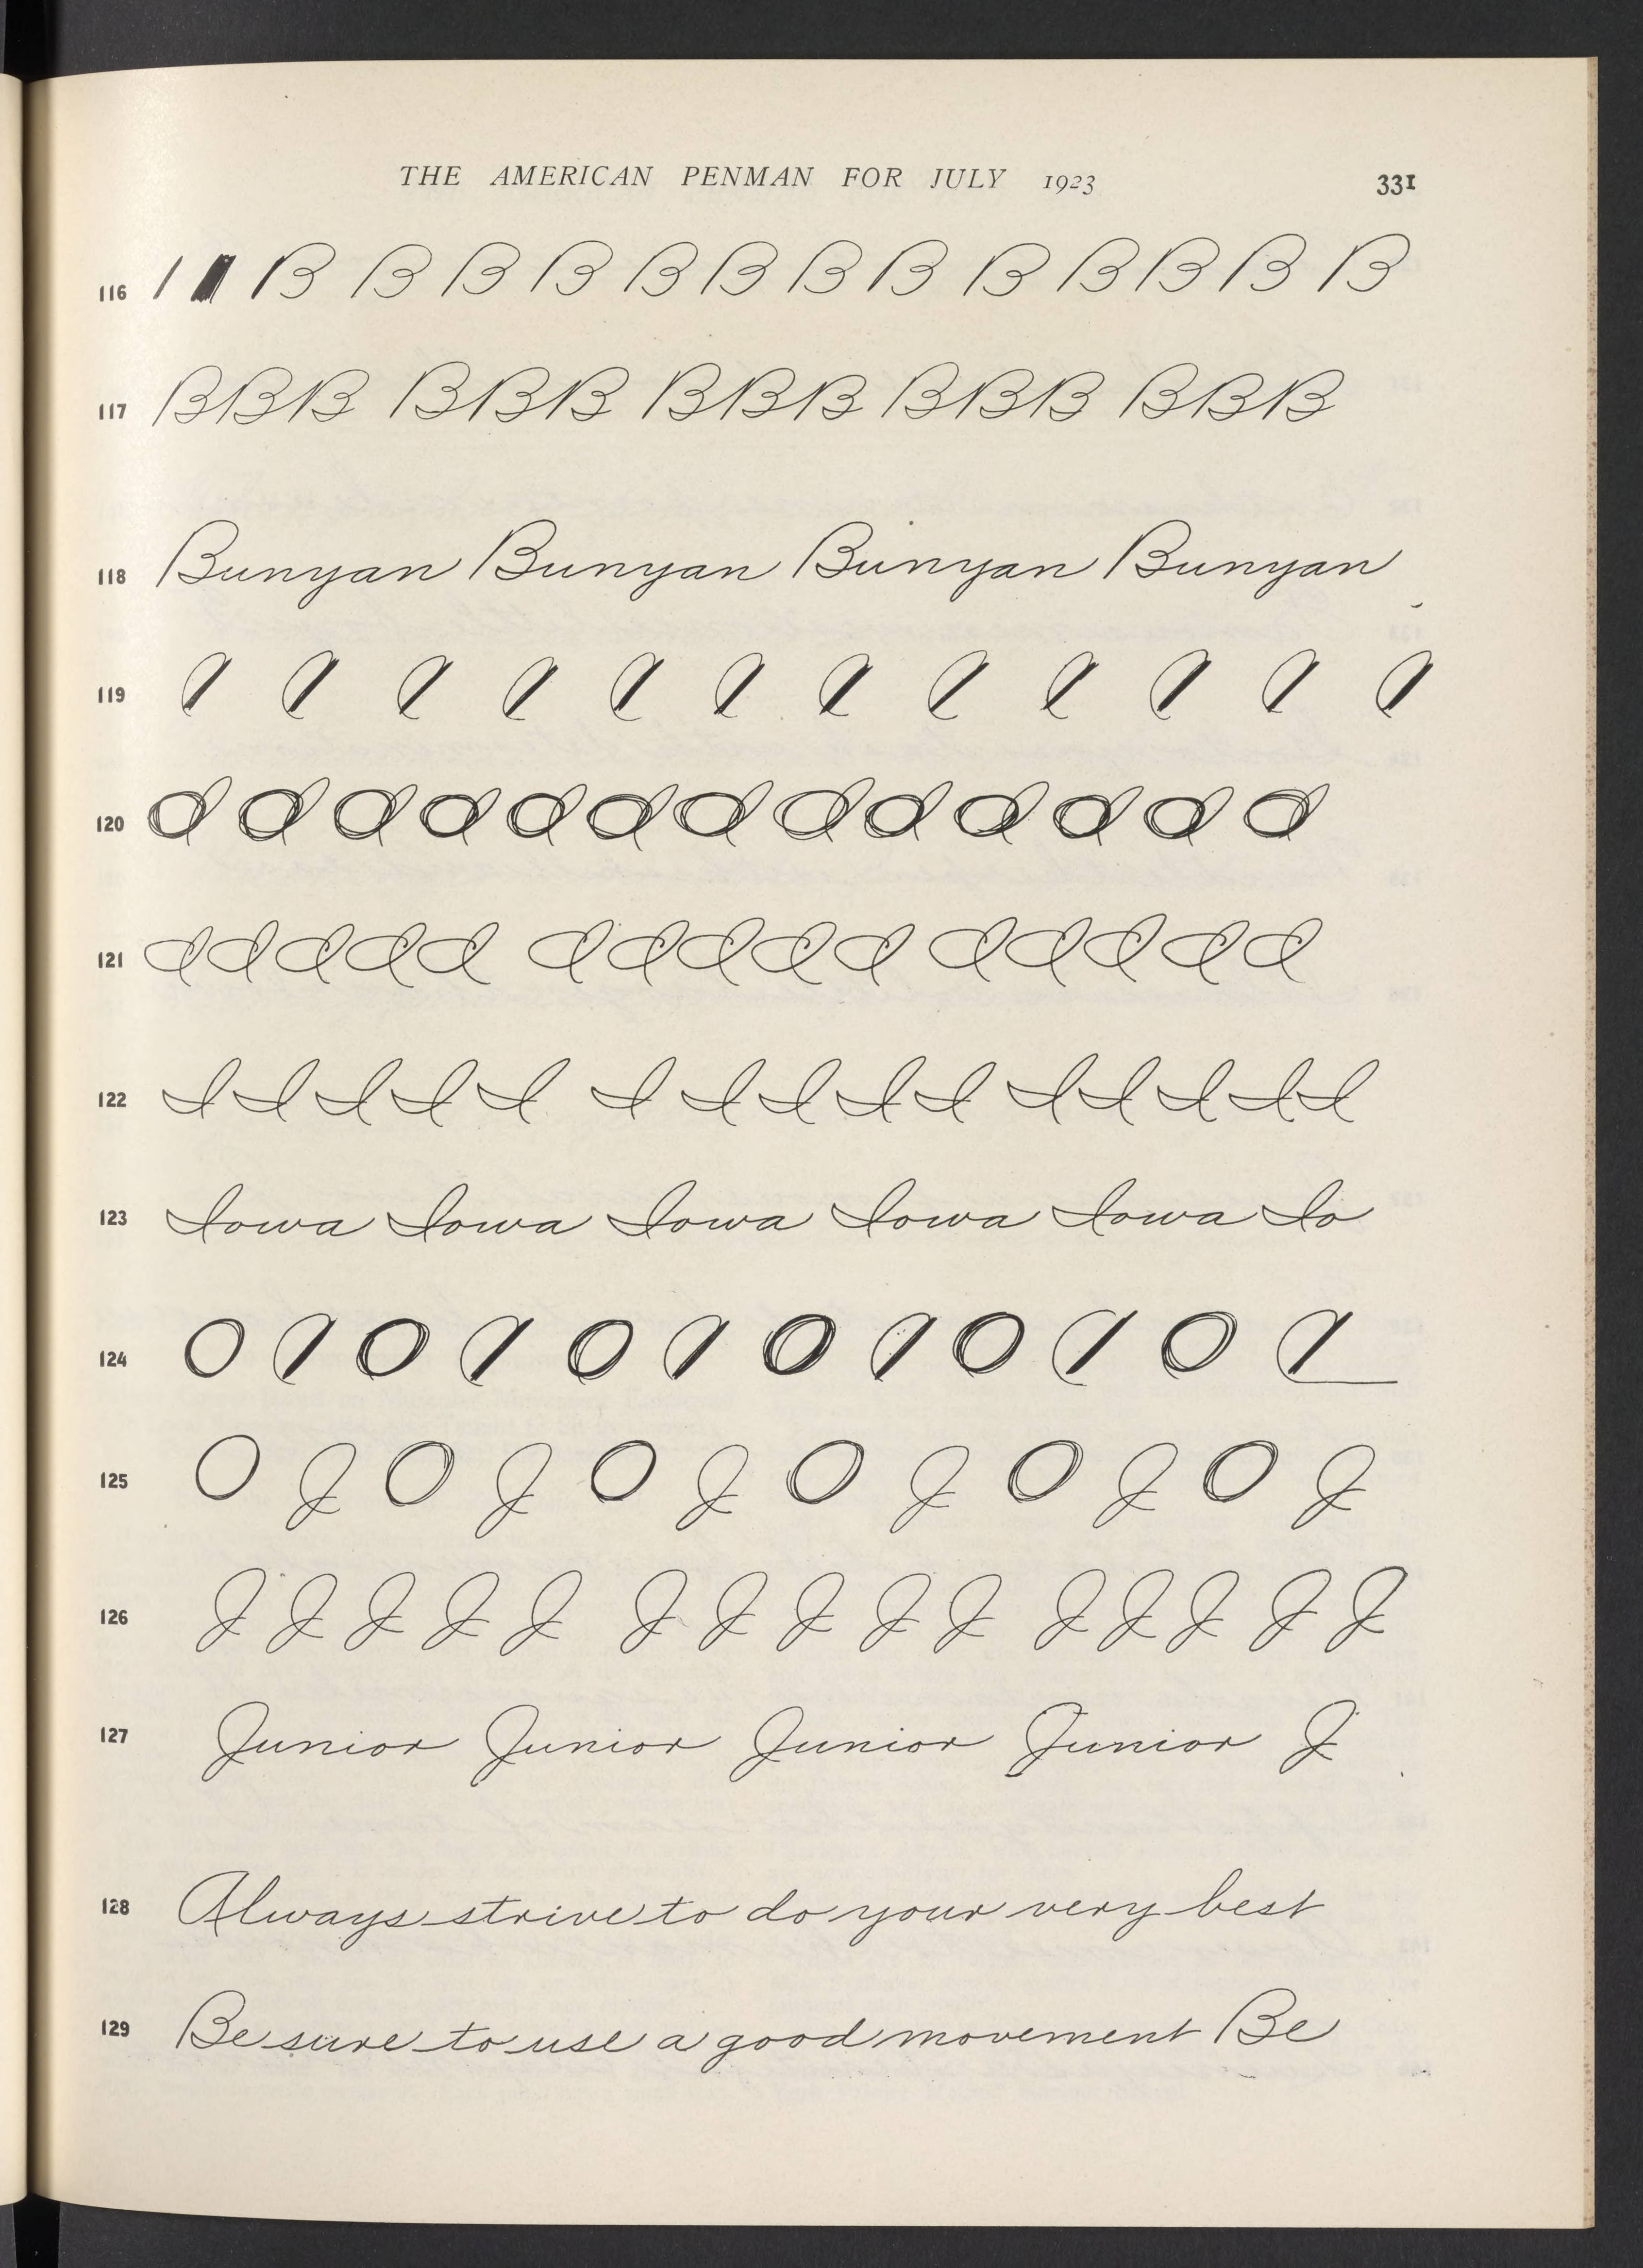 THE AMERICAN PENMAN FOR JULY 1923 331
116 B B B B B B B B B B B B B
117 BBB BBB BBB BBB BBB
118 Bunyan Bunyan Bunyan Bunyan
119
120
121 IIIII IIIII IIIII
122 IIIII IIIII IIIII
123 Iowa Iowa Iowa Iowa Iowa Io
124
125 O J O J O J O J O J O J
126 JJJJJ JJJJJ JJJJJ
127 Junior Junior Junior Junior J
128 Always strive to do your very best
129 Be sure to use a good movement Be